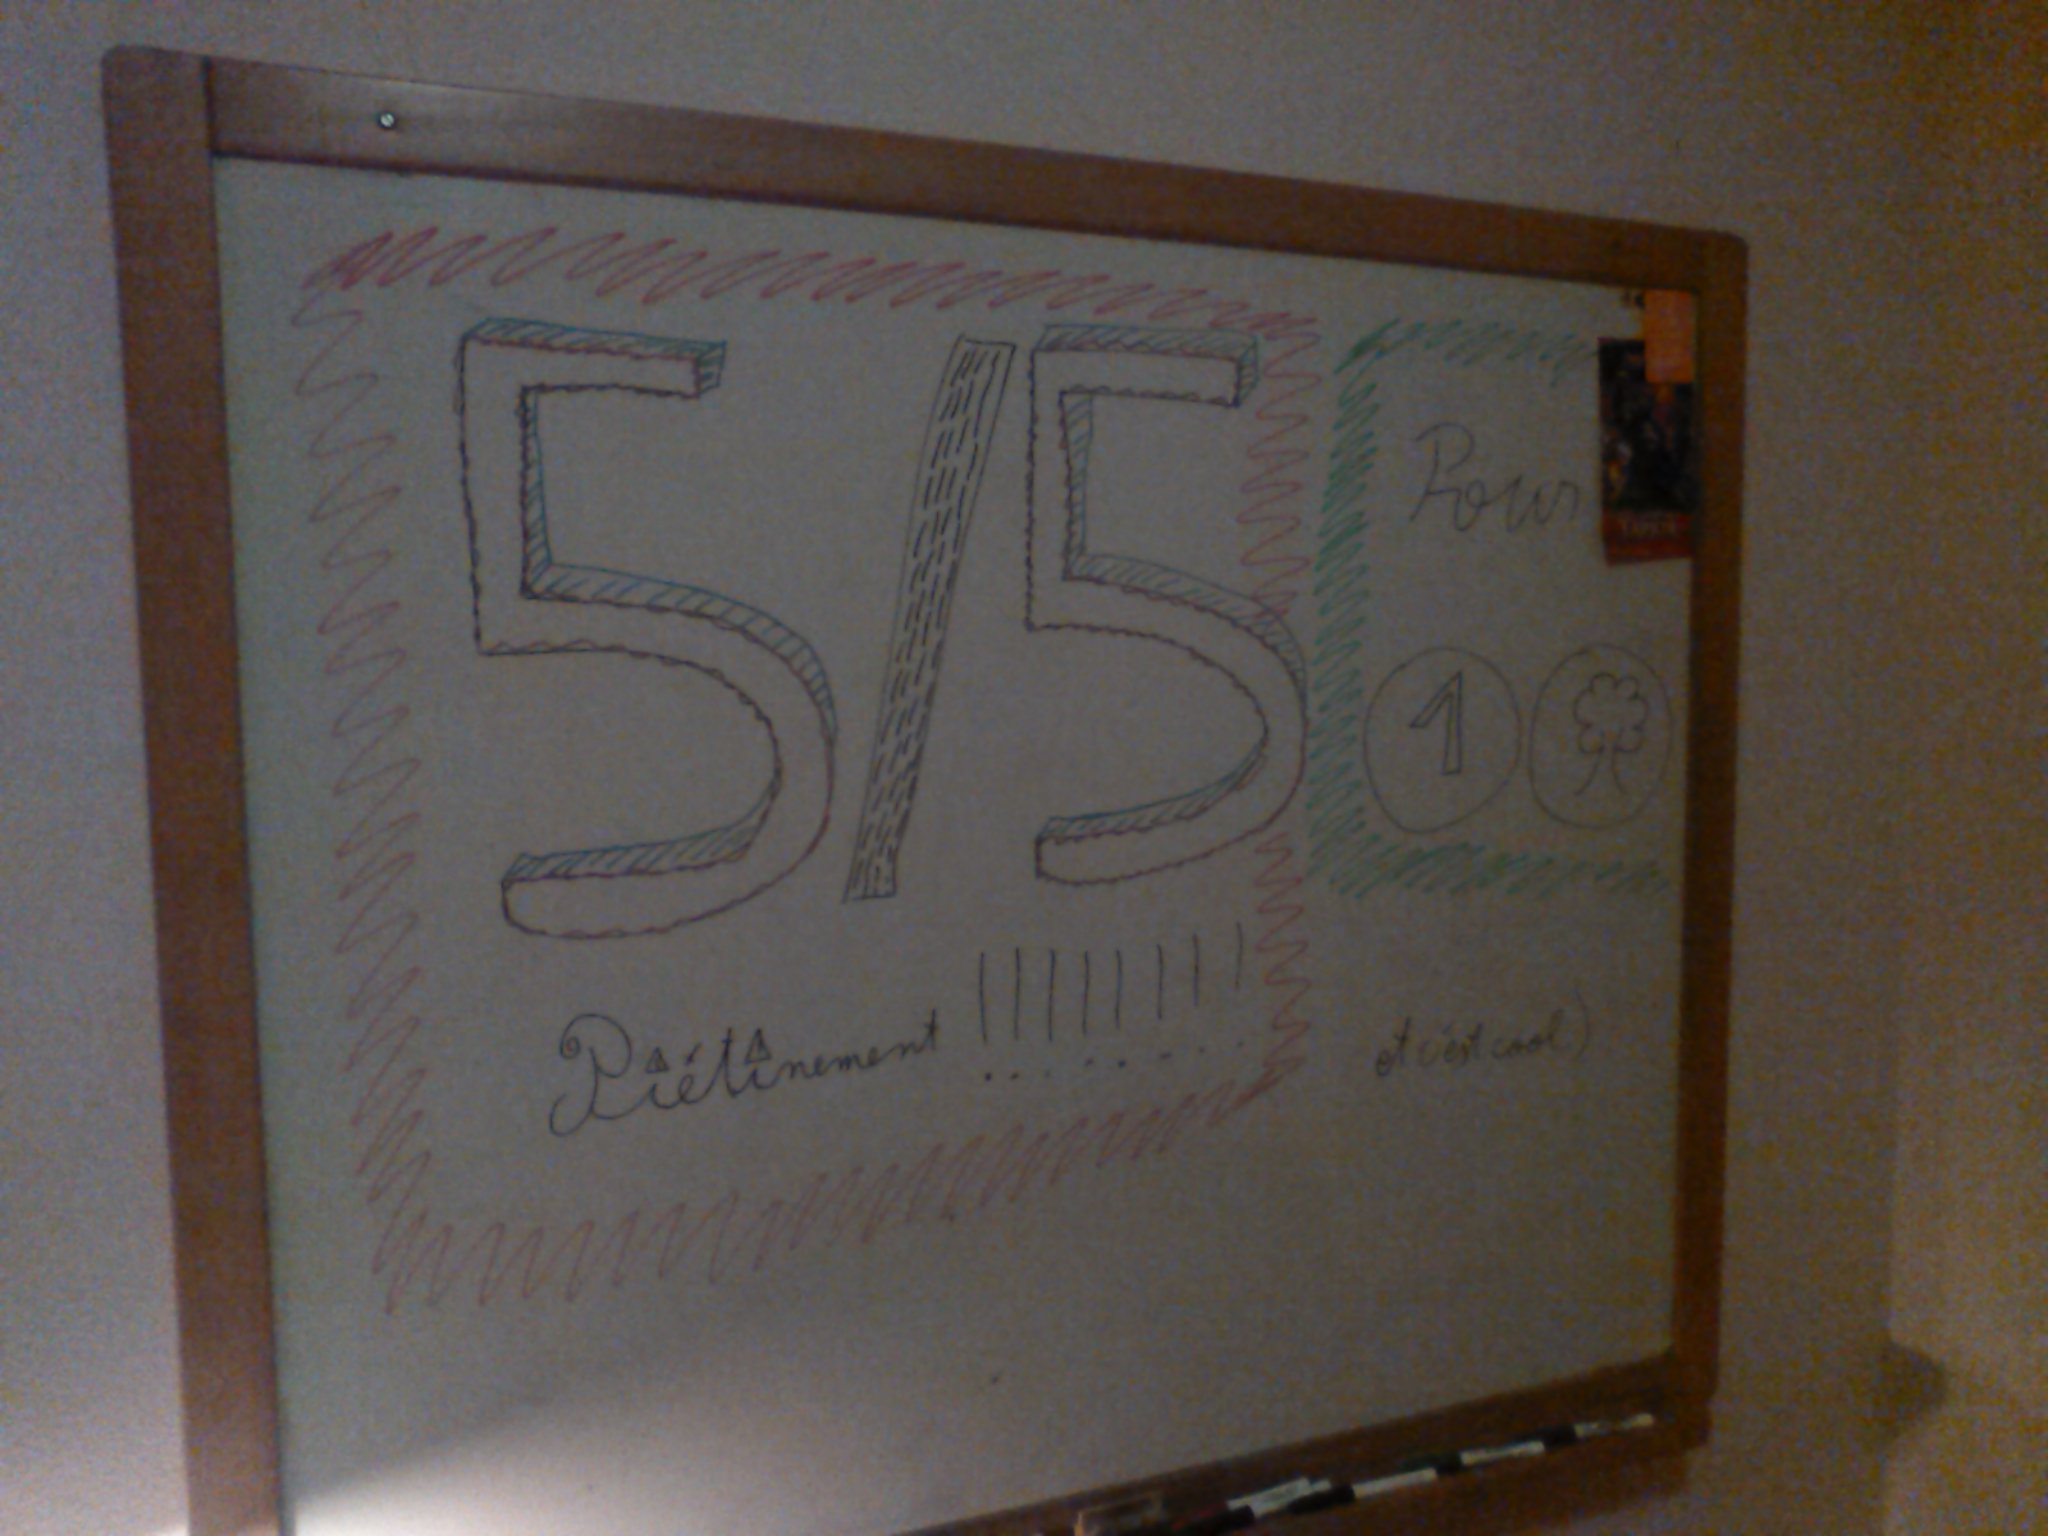 5/5
Piétinement !!!!!!!!
Pour
1
et c'est cool)